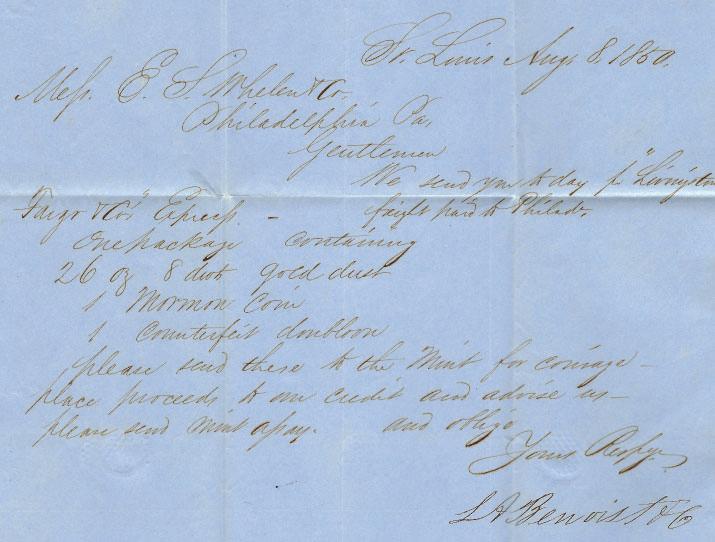 St. Louis Aug. 8. 1850.
Mess. E. S. Whelen & Co.
Philadelphia Pa.
Gentlemen
We send you to day p "Livingston
Fargo & Co's" Express. - fraight paid to Philada.
One package containing
26 oz 8 dwts gold dust
1 Mormon Coin
1 Counterfeit doubloon
please send these to the Mint for coinage -
place proceeds to our credit and advise us -
please send mint assay. and oblige
Yours Respy.
L A Benoist & Co